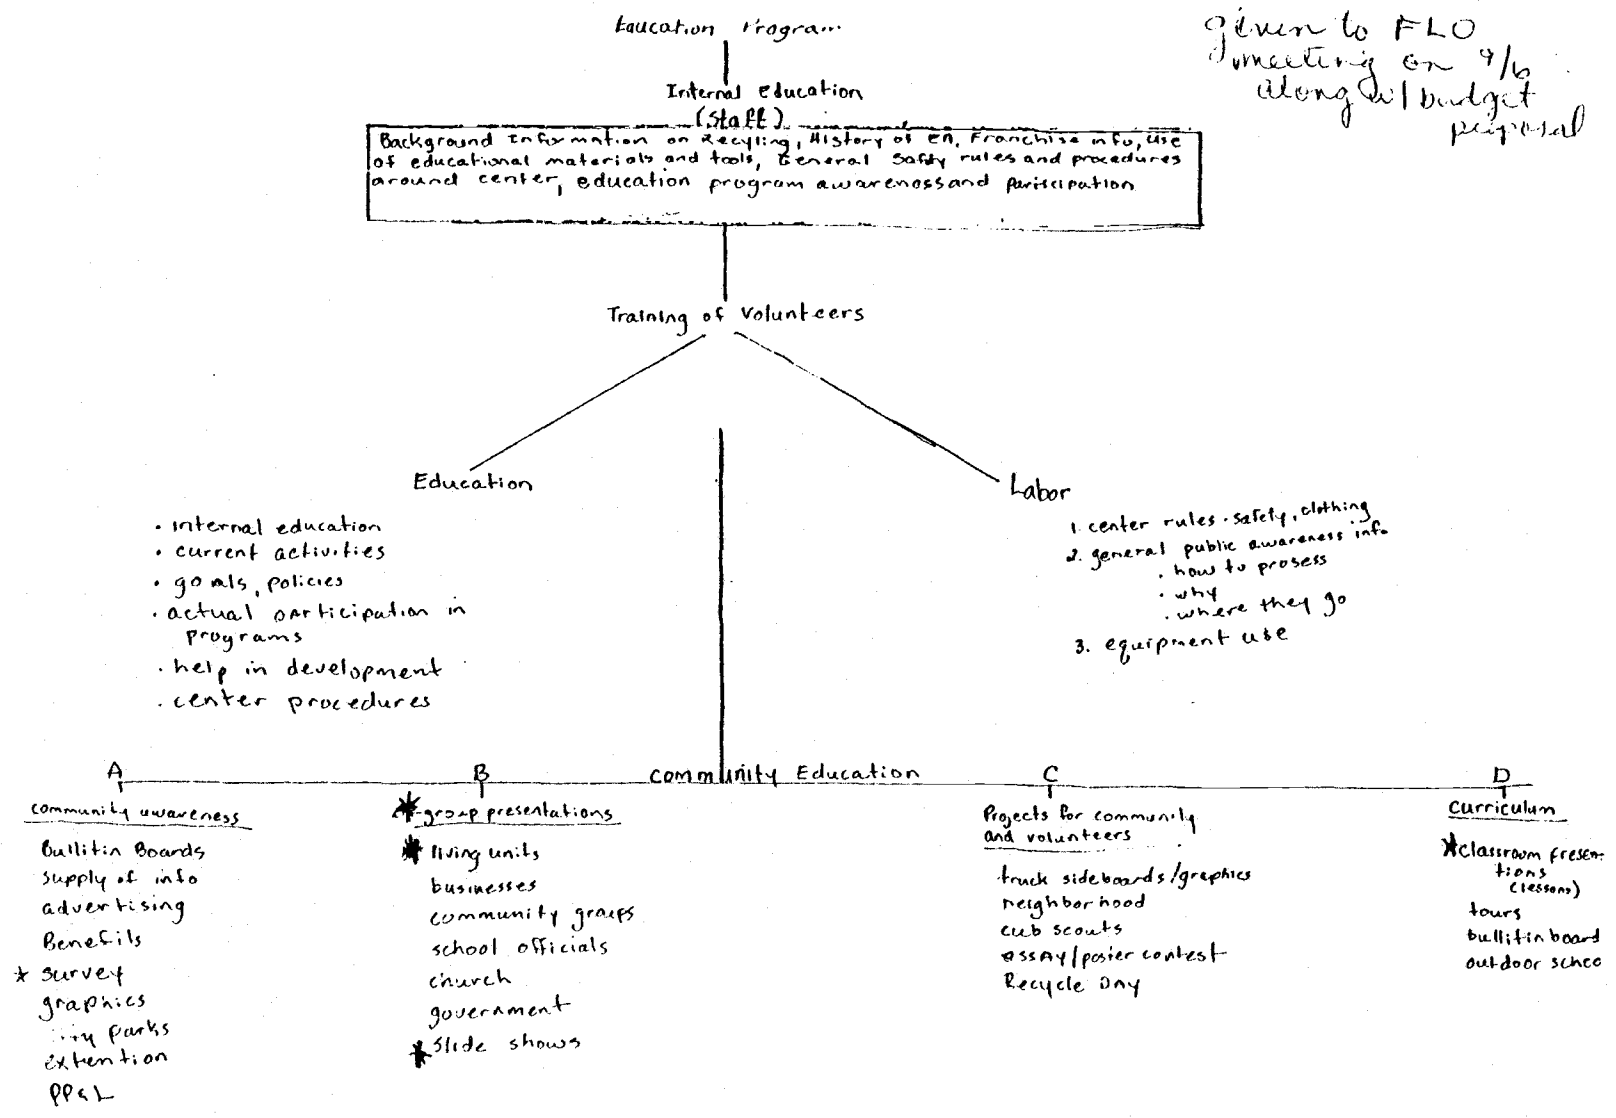 Education Program
given to FLO
meeting on 9/6
along w/ budget
proposal
Internal education
(Staff)
Background Information on Recyling, History of EA, Franchise info, use
of educational materials and tools, General Safty rules and procedures
around center, education program awareness and pariscipation
Training of Volunteers
Education
· internal education
· current activities
· goals, policies
· actual participation in
programs
· help in development
· center procedures
Labor
1. center rules · safety, clothing
2. general public awareness info
· how to prosess
· why
· where they go
3. equipment use
Community Education
A
community awareness
Bullitin Boards
supply of info
advertising
Benefits
* survey
graphics
parks
extention
PP&L
B
* group presentations
* living units
businesses
community groups
school officials
church
government
* Slide shows
C
Projects for community
and volunteers
truck sideboards/graphics
neighborhood
cub scouts
essay/poster contest
Recycle Day
D
Curriculum
* classroom presen-
tions
(lessons)
tours
bullitin board
outdoor schoo